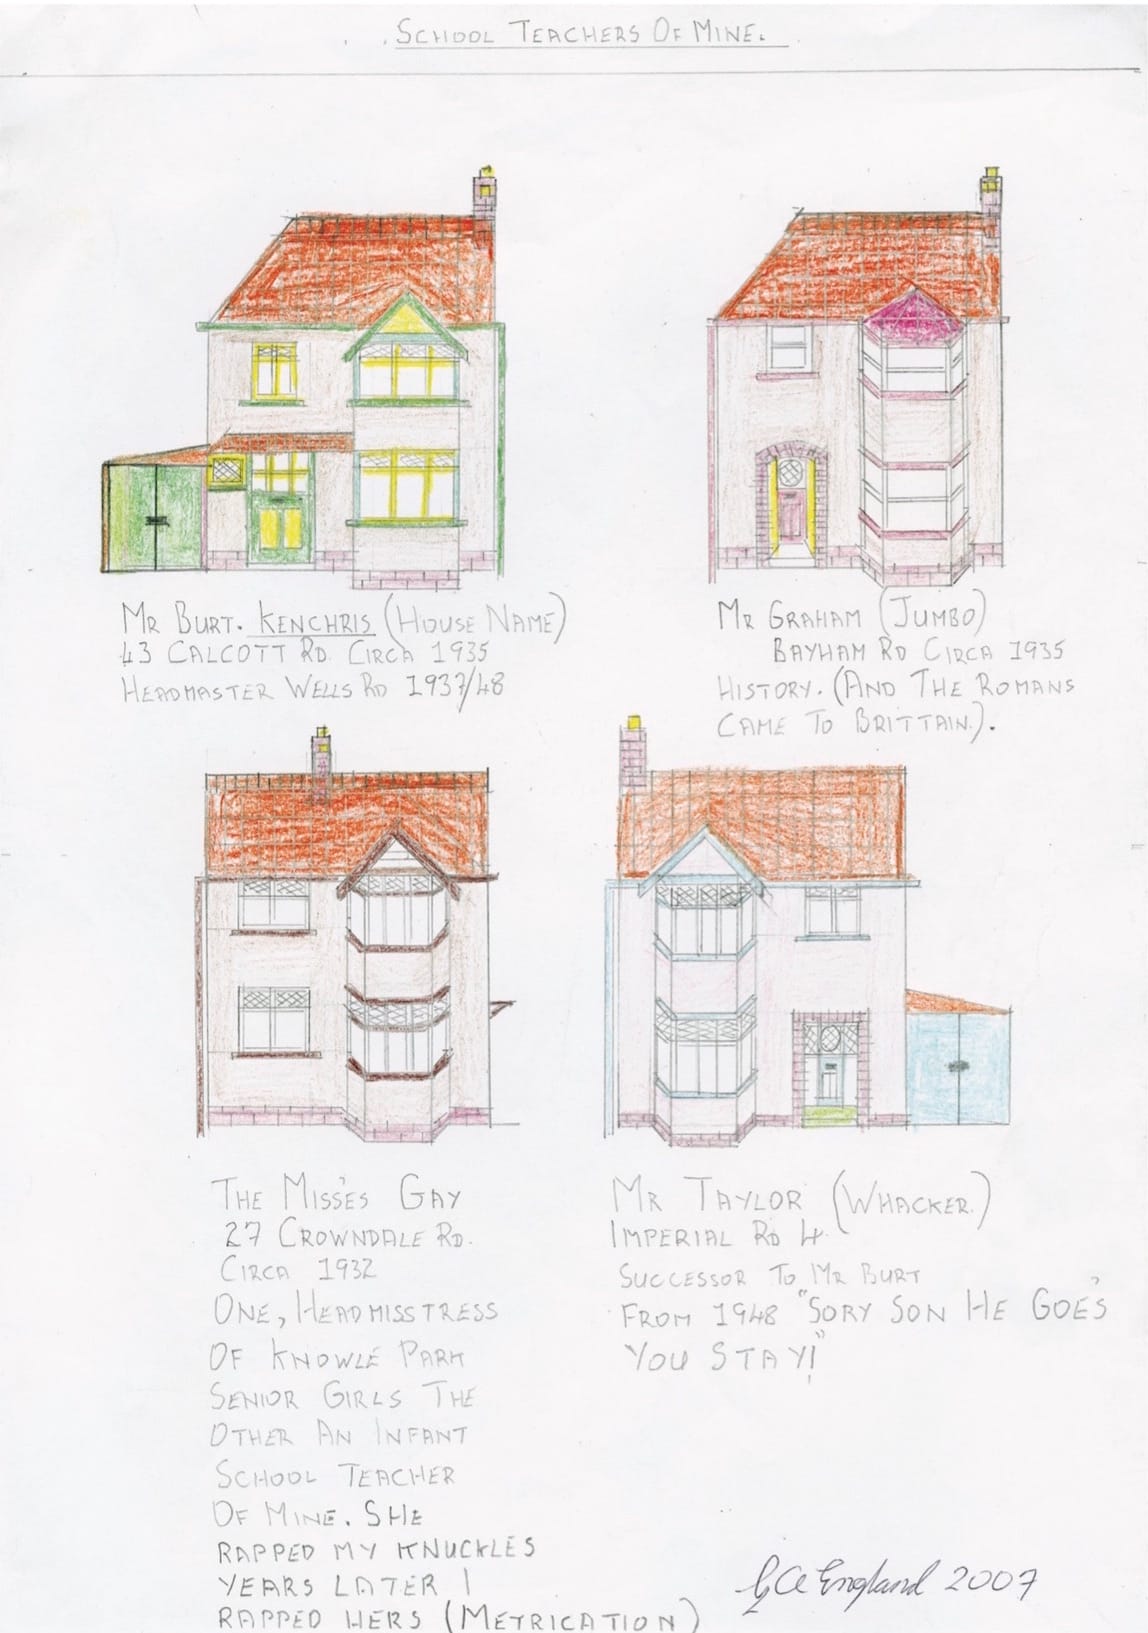 SCHOOL TEACHERS OF MINE.
MR BURT. KENCHRIS (HOUSE NAME)
43 CALCOTT RD. CIRCA 1935
HEADMASTER WELLS RD 1937/48
MR GRAHAM (JUMBO)
BAYHAM RD CIRCA 1935
HISTORY. (AND THE ROMANS
CAME TO BRITTAIN.).
THE MISS'ES GAY
27 CROWNDALE RD.
CIRCA 1932
ONE, HEADMISSTRESS
OF KNOWLE PARK
SENIOR GIRLS THE
OTHER AN INFANT
SCHOOL TEACHER
OF MINE. SHE
RAPPED MY KNUCKLES
YEARS LATER I
RAPPED HERS (METRICATION)
MR TAYLOR (WHACKER.)
IMPERIAL RD 4.
SUCCESSOR TO MR BURT
FROM 1948 "SORY SON HE GOE'S
YOU STAY!"
GA England 2007